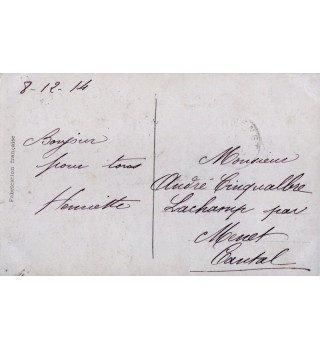 8-12-14
Bonjour
pour tous
Henriette
Fabrication française
Monsieur
André Cinqualbre
Lachamp par
Menet
Cantal